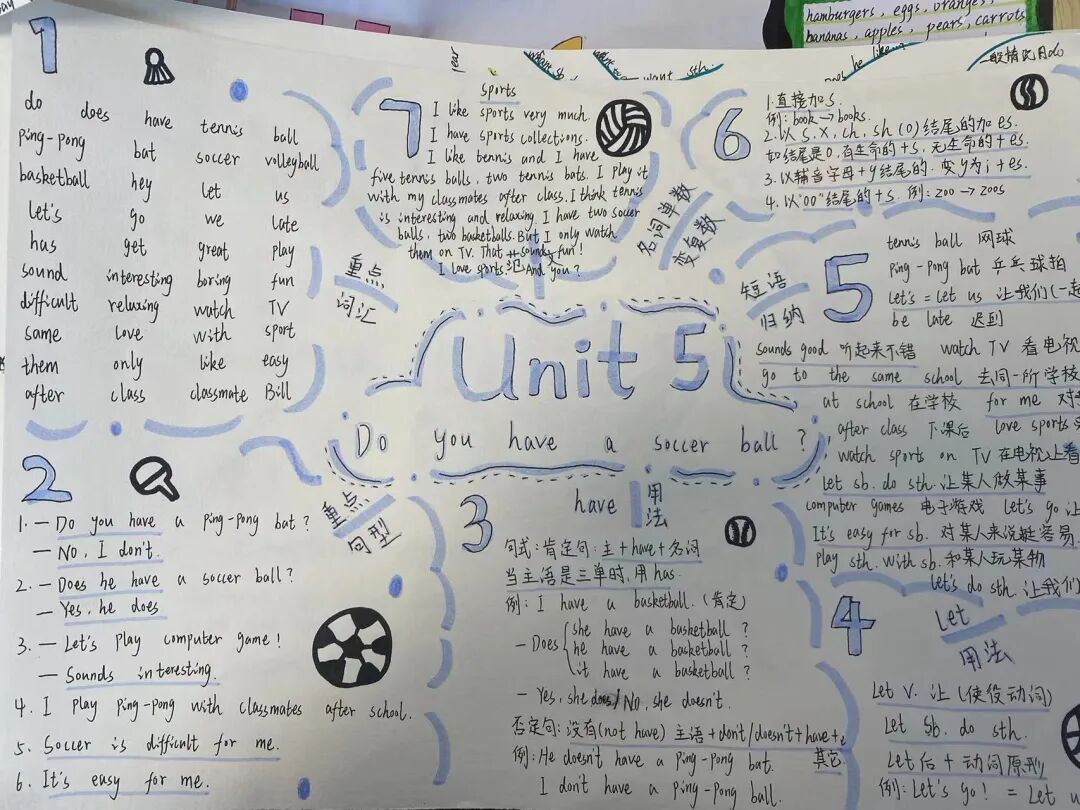 hamburgers, eggs, oranges,
bananas, apples, pears, carrots
want sth.
一般情况用do
1
do does have tennis ball
ping-pong bat soccer volleyball
basketball hey let us
let's go we late
has get great play
sound interesting boring fun
difficult relaxing watch TV
same love with sport
them only like easy
after class classmate Bill
重点
词汇
7
sports
I like sports very much.
I have sports collections.
I like tennis and I have
five tennis balls, two tennis bats. I play it
with my classmates after class. I think tennis
is interesting and relaxing. I have two soccer
balls, two basketballs. But I only watch
them on TV. That sounds fun!
I love sports And you?
6
1.直接加s.
例: book→books.
2.以s,x,ch,sh(o)结尾的加es.
如结尾是o,有生命的+s.无生命的+es.
3.以辅音字母+y结尾的.变y为i+es.
4.以"oo"结尾的+s.例:zoo→zoos
名词单数
变复数
Unit 5
Do you have a soccer ball?
短语
归纳
5
tennis ball 网球
ping-pong bat 乒乓球拍
let's=let us 让我们(一起
be late 迟到
sounds good 听起来不错 watch TV 看电视
go to the same school 去同一所学校
at school 在学校 for me 对
after class 下课后 love sports
watch sports on TV 在电视上看
let sb. do sth.让某人做某事
computer games 电子游戏 let's go 让
It's easy for sb. 对某人来说挺容易
play sth. with sb.和某人玩某物
let's do sth.让我们
2
重点
句型
1. — Do you have a ping-pong bat?
— No, I don't.
2. — Does he have a soccer ball?
— Yes, he does
3. — Let's play computer game!
— Sounds interesting.
4. I play ping-pong with classmates after school.
5. Soccer is difficult for me.
6. It's easy for me.
3
have 用法
句式:肯定句:主+have+名词
当主语是三单时,用has.
例: I have a basketball.(肯定)
— Does she have a basketball?
he have a basketball?
it have a basketball?
— Yes, she does/No, she doesn't.
否定句:没有(not have) 主语+don't/doesn't+have+
其它
例: He doesn't have a ping-pong bat.
I don't have a ping-pong ball.
4
let
用法
let v. 让(使役动词)
let sb. do sth.
let后+动词原形
例: Let's go! = Let u